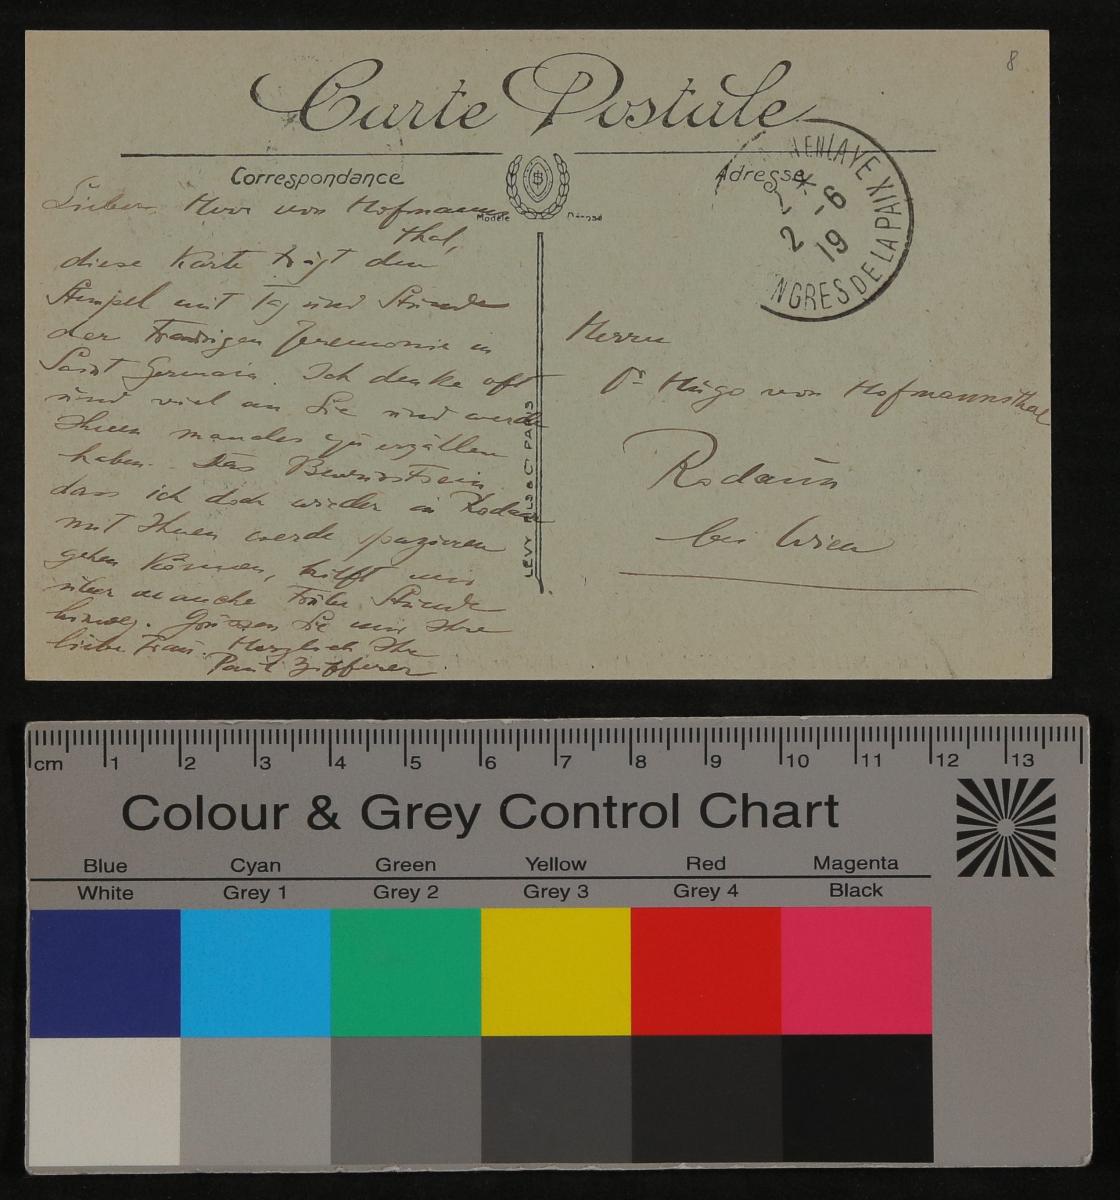 8
Carte Postale
Correspondance
Adresse
Modèle Déposé
ENLAYE XI
NGRES DE LA PAIX
*
2 -6
19
Lieber Herr von Hofmanns
thal,
diese Karte trägt den
Stempel mit Tag und Stunde
der Traurigen Zeremonie in
Saint Germain. Ich denke oft
und viel an Sie und werde
Ihnen manches zu erzällen
haben. Das Bewusstsein
dass ich doch wieder in Rodaun
mit Ihnen werde spazieren
gehen können, hilft mir
über manche trübe Stunde
hinweg. Grüssen Sie mir Ihre
liebe Frau. Herzlich Ihr
Paul Zifferer
LEVY FILS & Cie PARIS
Herrn
Dr Hugo von Hofmannsthal
Rodaun
bei Wien
cm 1 2 3 4 5 6 7 8 9 10 11 12 13
Colour & Grey Control Chart
Blue Cyan Green Yellow Red Magenta
White Grey 1 Grey 2 Grey 3 Grey 4 Black